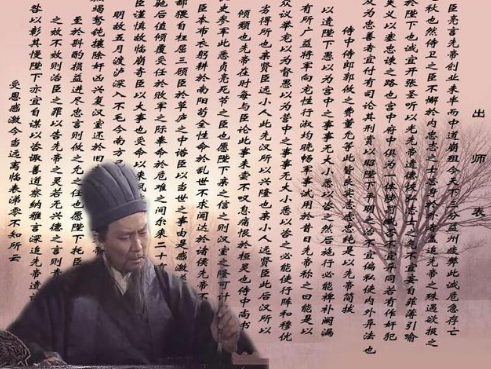 出师表
臣亮言先帝创业未半而中道崩殂今天下三分益州疲弊此诚危急存亡
之秋也然侍卫之臣不懈於内忠志之士忘身於外者盖追先帝之殊遇欲报之
於陛下也诚宜开张圣听以光先帝遗德恢弘志士之气不宜妄自菲薄引喻
失义以塞忠谏之路也宫中府中俱为一体陟罚臧否不宜异同若有作奸犯
科及为忠善者宜付有司论其刑赏以昭陛下平明之治不宜偏私使内外异法也
侍中侍郎郭攸之费祎董允等此皆良实志虑忠纯是以先帝简拔
以遗陛下愚以为宫中之事事无大小悉以咨之然后施行必能裨补阙漏
有所广益将军向宠性行淑均晓畅军事试用於昔日先帝称之曰能是以
众议举宠以为督愚以为营中之事事无大小悉以咨之必能使行阵和穆优
劣得所也亲贤臣远小人此先汉所以兴隆也亲小人远贤臣此后汉所以
倾颓也先帝在时每与臣论此事未尝不叹息痛恨於桓灵也侍中尚书
长史参军此悉贞亮死节之臣也愿陛下亲之信之则汉室之隆可计
臣本布衣躬耕於南阳苟全性命於乱世不求闻达於诸侯先帝不
卑鄙猥自枉屈三顾臣於草庐之中谘臣以当世之事由是感激
驰后值倾覆受任於败军之际奉命於危难之间尔来二十
臣谨慎故临崩寄臣以大事也受命以来夙
明故五月渡泸深入不毛今南
竭驽钝攘除奸凶兴复汉室还於旧
至於斟酌损益进尽忠言则攸之允之任也愿陛下托臣
之效不效则治臣之罪以告先帝之灵若无兴德之言则责
咎以彰其慢陛下亦宜自谋以谘诹善道察纳雅言深追先帝遗
受恩感激今当远离临表涕零不知所云